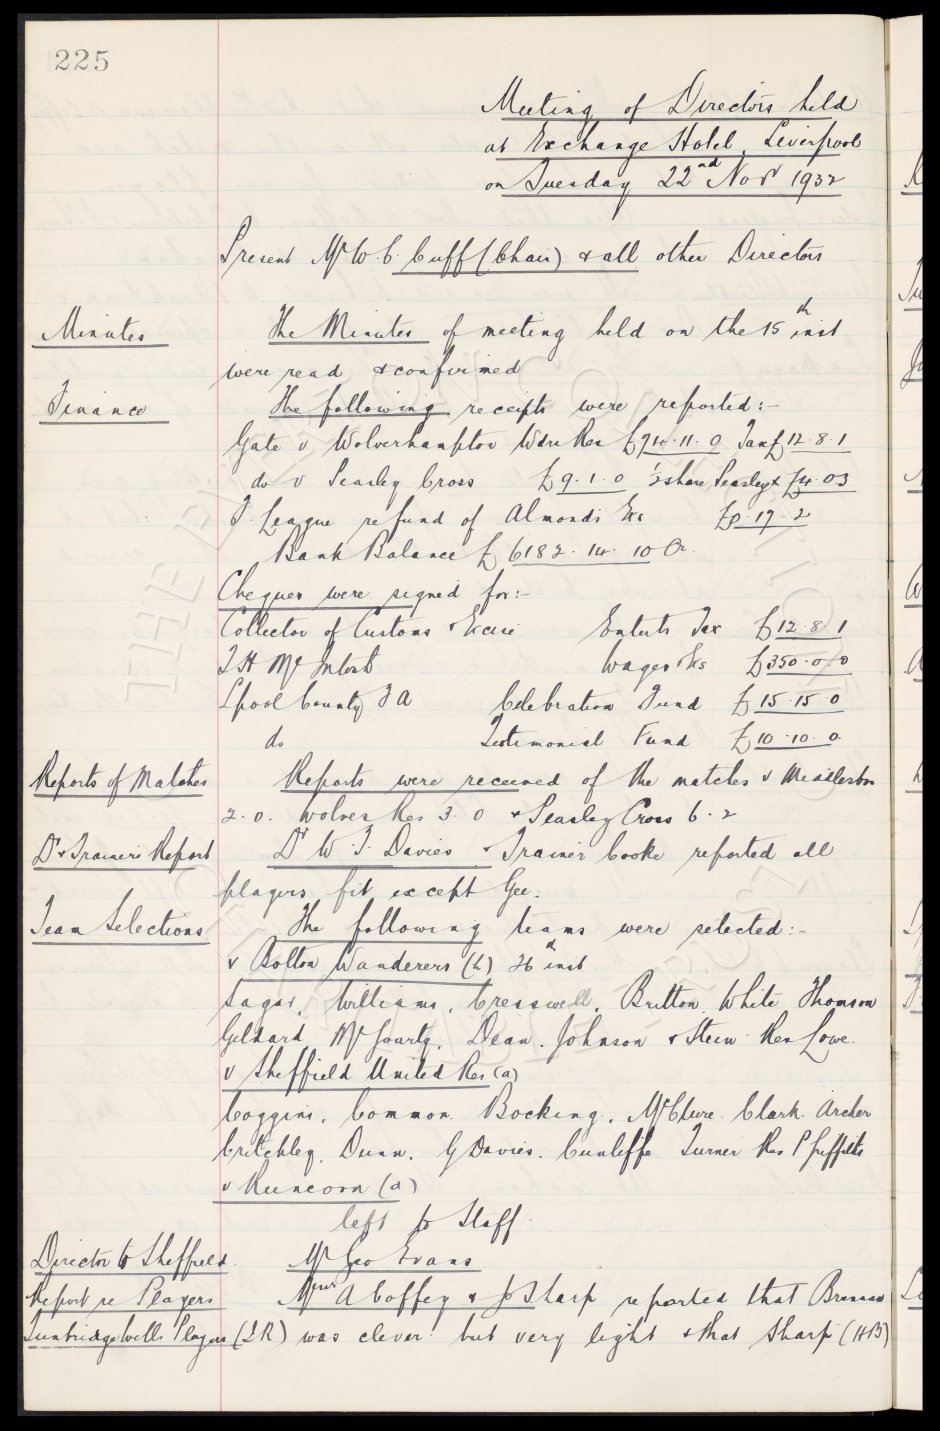 225
Meeting of Directors held
at Exchange Hotel, Liverpool
on Tuesday 22nd Novr 1932
Present Mr W. C. Cuff (Chair) & all other Directors
Minutes The Minutes of meeting held on the 15th inst
were read & confirmed
Finance The following receipts were reported:-
Gate v Wolverhampton Wdrs Res £74.11.0 Tax £12.8.1
do v Seasley Cross £9.1.0 ½ share Seasley X £4.03
F. League refund of Almonds Exs 17.2
Bank Balance £6182.14.10 Cr.
Cheques were signed for:-
Collector of Customs & Excise Enterts Tax £12.8.1
T H McIntosh Wages & Exs £350.0.0
Lpool County F A Celebration Fund £15.15.0
do Testimonial Fund £10.10.0
Reports of Matches Reports were received of the matches v Middlesbro
2.0. Wolves Res 3.0 & Seasley Cross 6.2
Dr & Trainers Report Dr W. F. Davies & Trainer Cooke reported all
players fit except Gee.
Team Selections The following teams were selected:-
v Bolton Wanderers (h) 26th inst
Sagar, Williams, Cresswell, Britton, White Thomson
Geldard McGourty, Dean, Johnson & Stein Res Lowe.
v Sheffield United Res (a)
Coggins, Common. Bocking, McClure. Clark. Archer
Critchley, Dunn, G Davies. Cunliffe Turner Res P Griffiths
v Runcorn (a)
left to Staff.
Director to Sheffield Mr Geo Evans
Report re Players Messrs A Coffey & J Sharp reported that Brennan
Tunbridge Wells Players (IR) was clever but very light & that Sharp (HB)
THE EVERTON COLLECTION